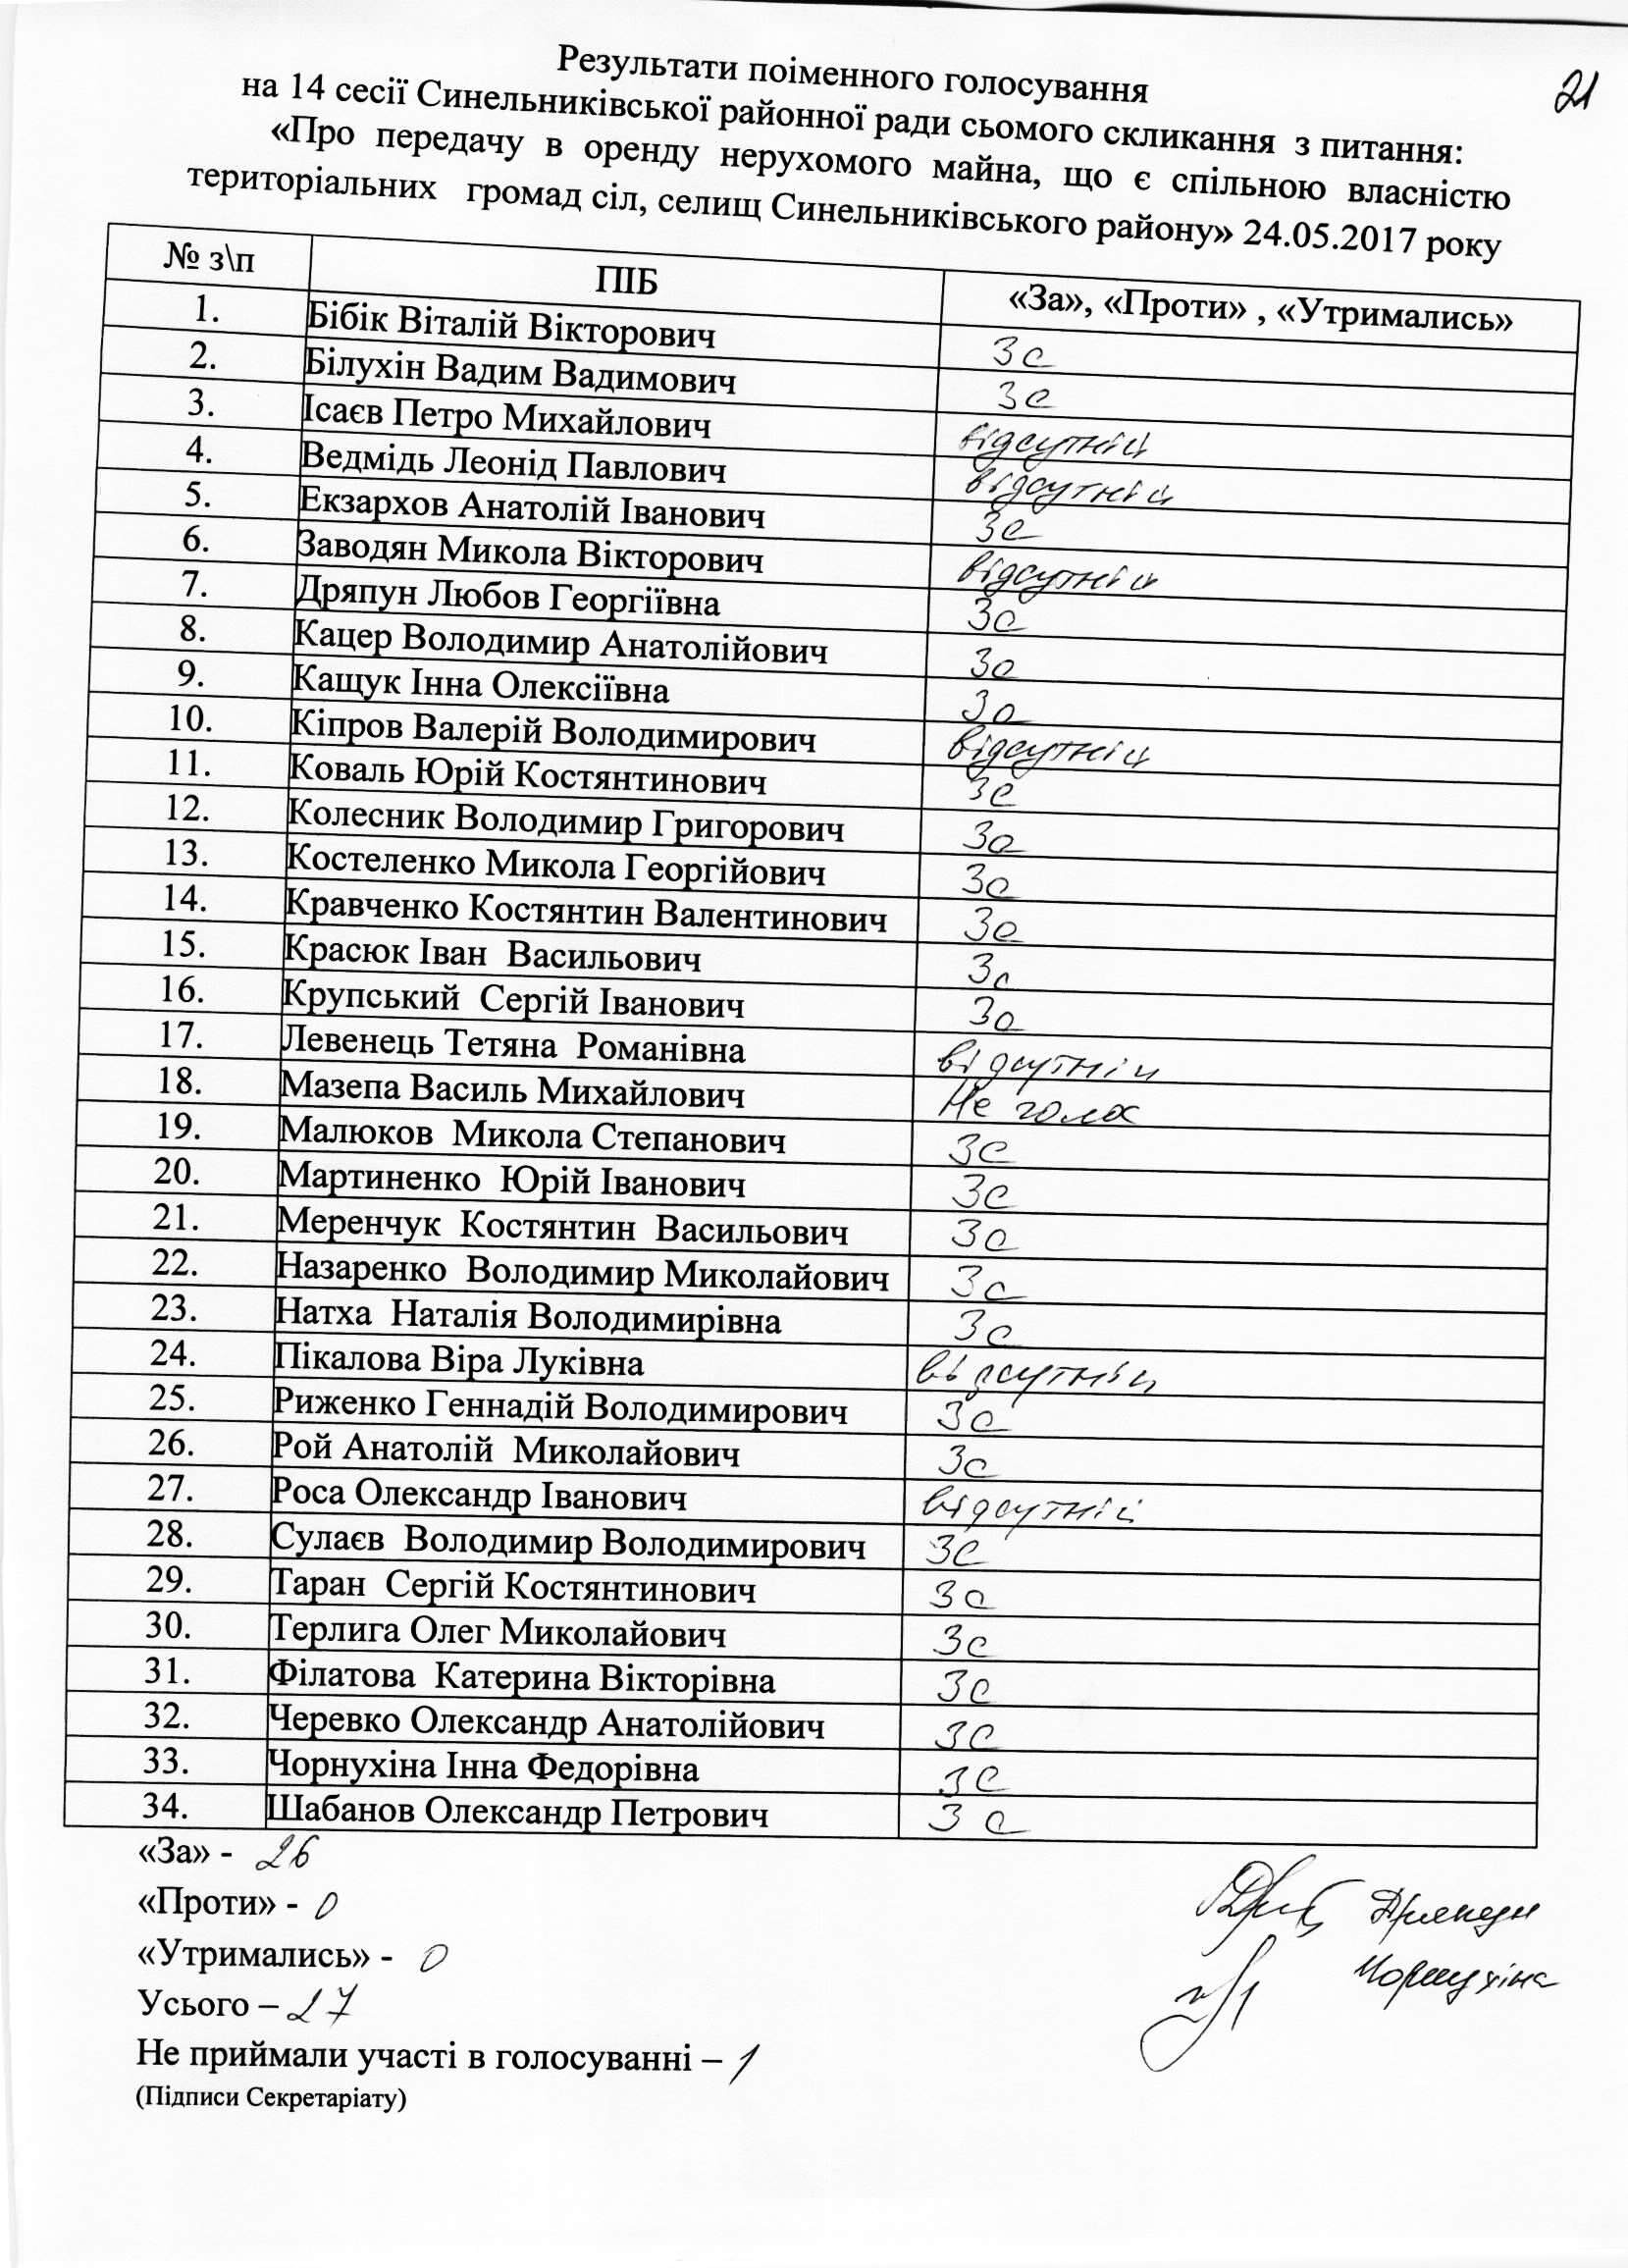 21
Результати поіменного голосування
на 14 сесії Синельниківської районної ради сьомого скликання з питання:
«Про передачу в оренду нерухомого майна, що є спільною власністю
територіальних громад сіл, селищ Синельниківського району» 24.05.2017 року
№ з\п ПІБ «За», «Проти» , «Утримались»
1. Бібік Віталій Вікторович За
2. Білухін Вадим Вадимович За
3. Ісаєв Петро Михайлович відсутній
4. Ведмідь Леонід Павлович відсутній
5. Екзархов Анатолій Іванович За
6. Заводян Микола Вікторович відсутній
7. Дряпун Любов Георгіївна За
8. Кацер Володимир Анатолійович За
9. Кащук Інна Олексіївна За
10. Кіпров Валерій Володимирович відсутній
11. Коваль Юрій Костянтинович За
12. Колесник Володимир Григорович За
13. Костеленко Микола Георгійович За
14. Кравченко Костянтин Валентинович За
15. Красюк Іван Васильович За
16. Крупський Сергій Іванович За
17. Левенець Тетяна Романівна відсутній
18. Мазепа Василь Михайлович Не голос
19. Малюков Микола Степанович За
20. Мартиненко Юрій Іванович За
21. Меренчук Костянтин Васильович За
22. Назаренко Володимир Миколайович За
23. Натха Наталія Володимирівна За
24. Пікалова Віра Луківна відсутній
25. Риженко Геннадій Володимирович За
26. Рой Анатолій Миколайович За
27. Роса Олександр Іванович відсутній
28. Сулаєв Володимир Володимирович За
29. Таран Сергій Костянтинович За
30. Терлига Олег Миколайович За
31. Філатова Катерина Вікторівна За
32. Черевко Олександр Анатолійович За
33. Чорнухіна Інна Федорівна За
34. Шабанов Олександр Петрович За
«За» - 26
«Проти» - 0
Дряпун
«Утримались» - 0
Чорнухіна
Усього – 27
Не приймали участі в голосуванні – 1
(Підписи Секретаріату)